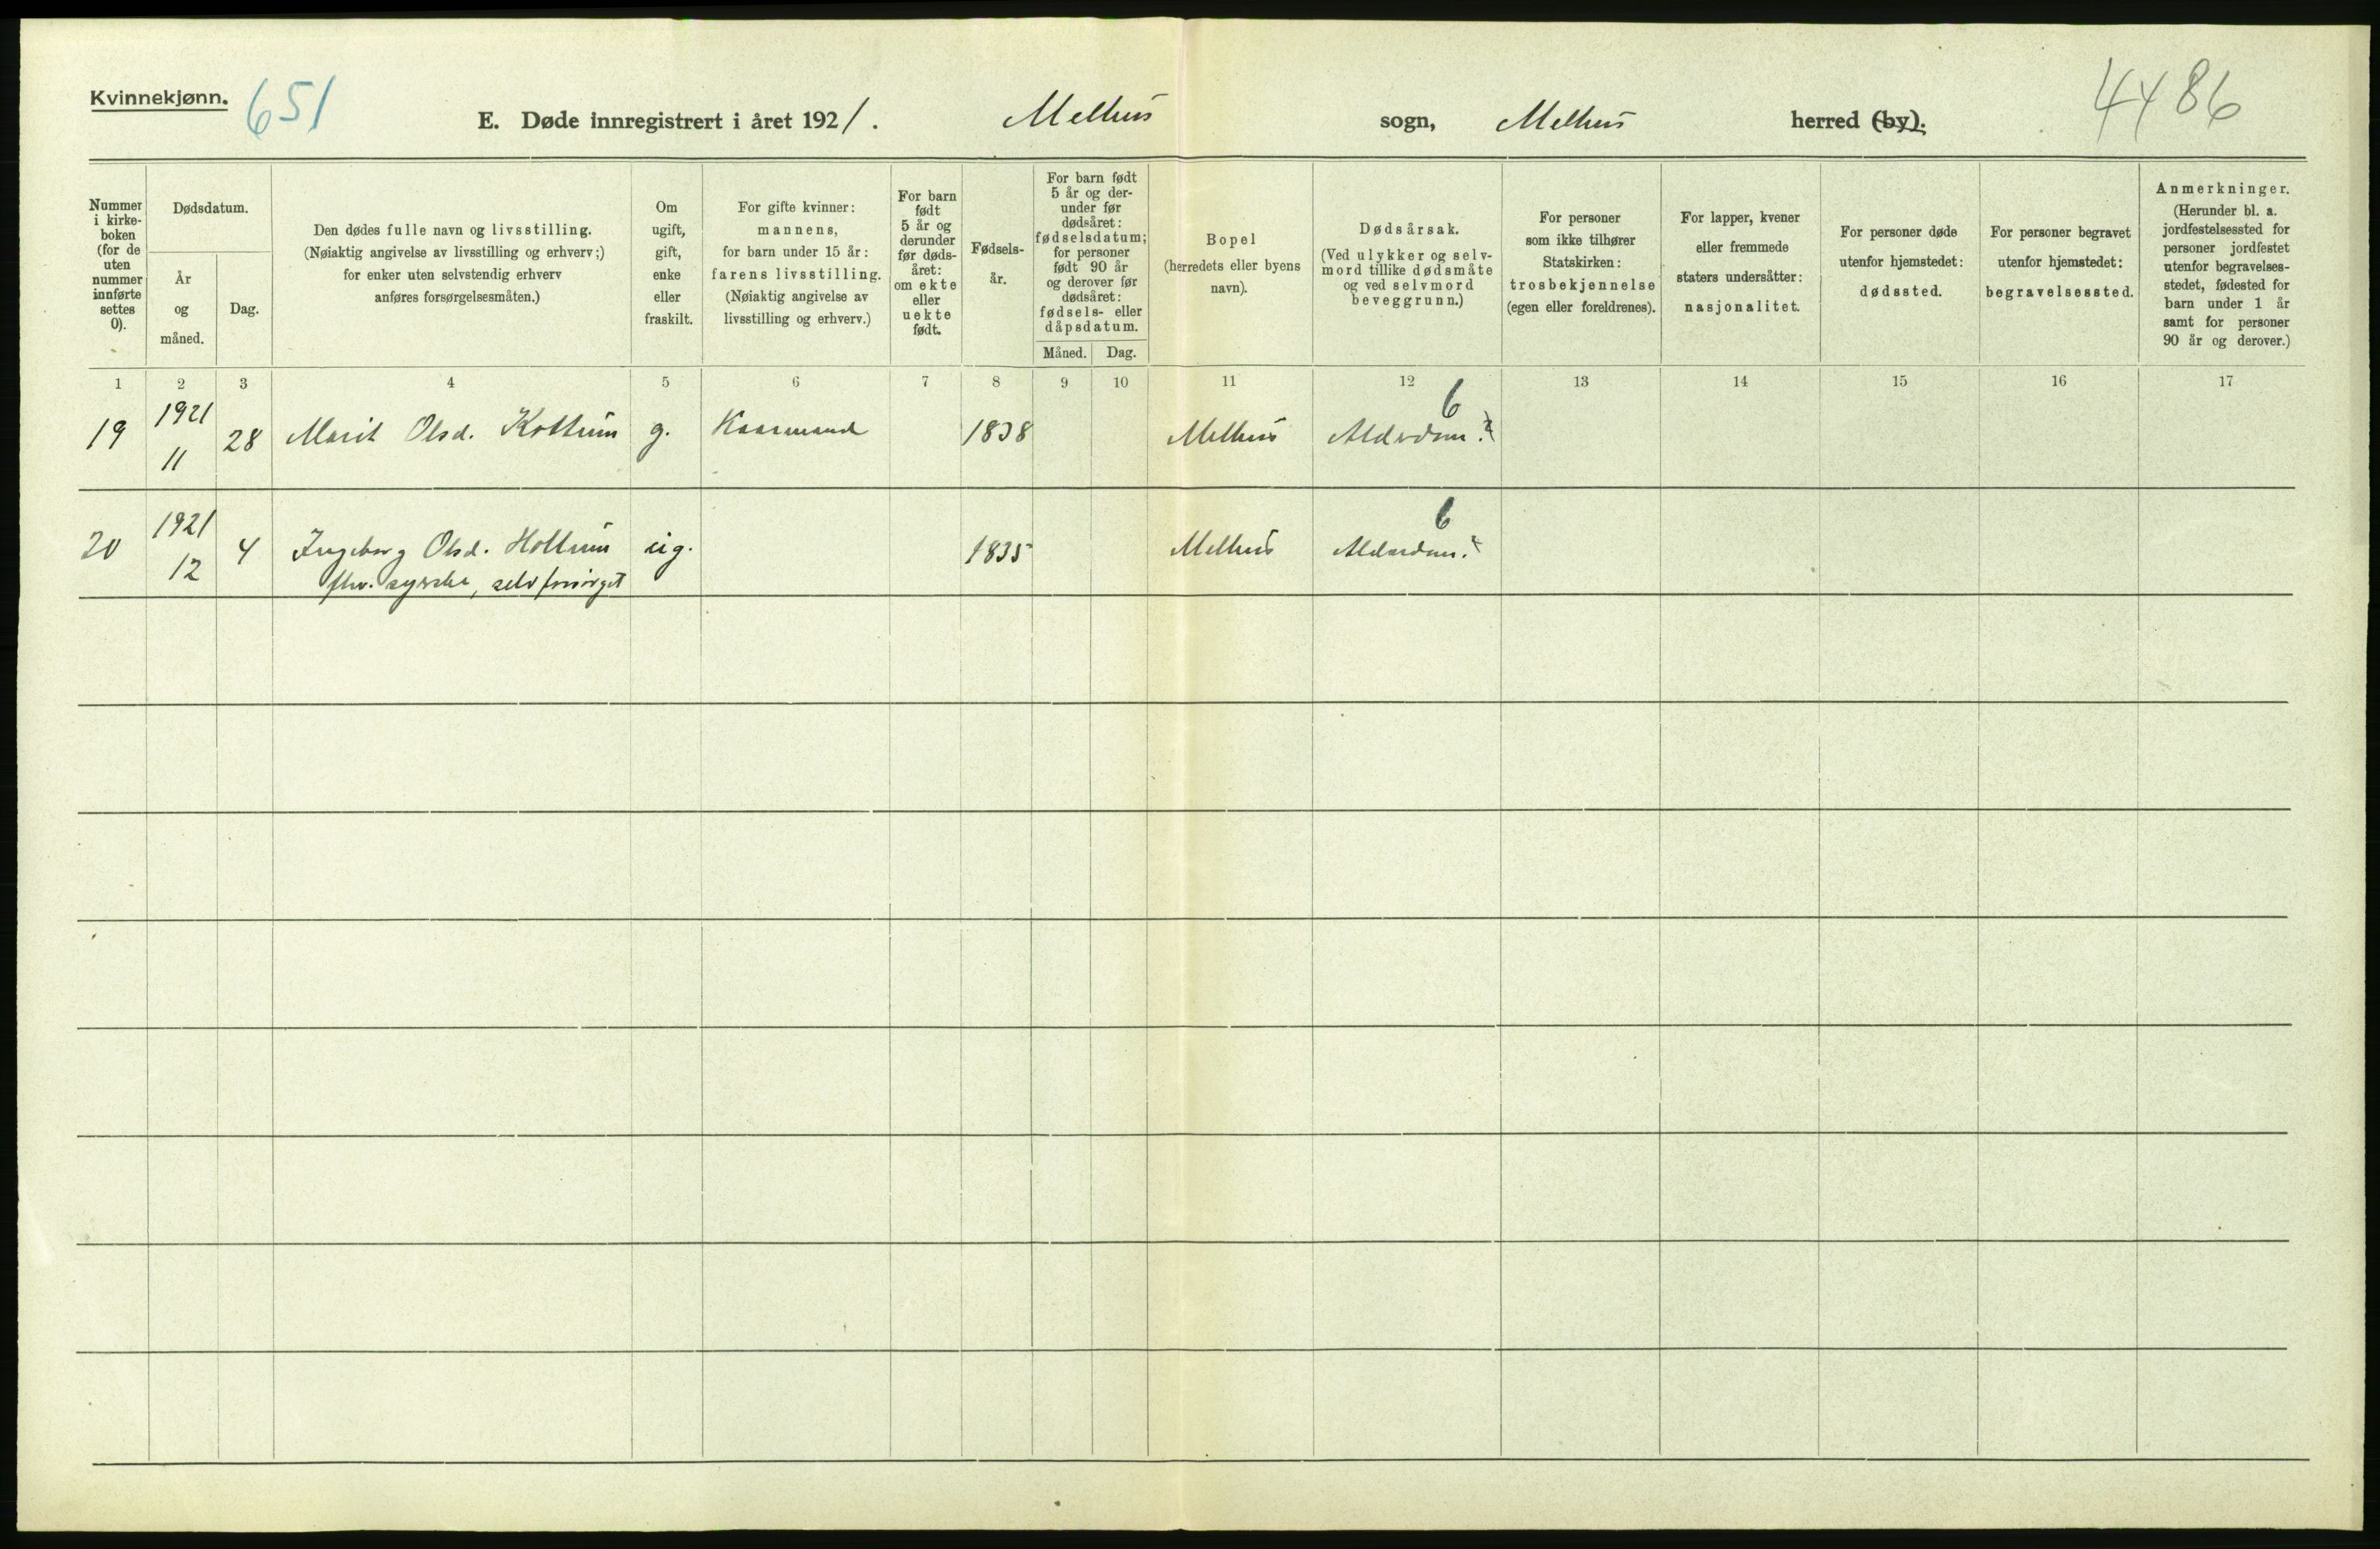 Kvinnekjønn.
651
E. Døde innregistrert i året 1921. Melhus sogn, Melhus herred (by).
4486
Nummer i kirke- boken (for de uten nummer innførte settes 0).
Dødsdatum.
År og måned.
Dag.
Den dødes fulle navn og livsstilling.
(Nøiaktig angivelse av livsstilling og erhverv;)
for enker uten selvstendig erhverv
anføres forsørgelsesmåten.)
Om
ugift,
gift,
enke
eller
fraskilt.
For gifte kvinner:
mannens,
for barn under 15 år:
farens livsstilling.
(Nøiaktig angivelse av
livsstilling og erhverv.)
For barn
født
5 år og
derunder
før døds-
året:
om ekte
eller
uekte
født.
Fødsels-
år.
For barn født
5 år og der-
under før
dødsåret:
fødselsdatum;
for personer
født 90 år
og derover før
dødsåret:
fødsels- eller
dåpsdatum.
Måned. Dag.
Bopel
(herredets eller byens
navn).
Dødsårsak.
(Ved ulykker og selv-
mord tillike dødsmåte
og ved selvmord
beveggrunn.)
For personer
som ikke tilhører
Statskirken:
trosbekjennelse
(egen eller foreldrenes).
For lapper, kvener
eller fremmede
staters undersåtter:
nasjonalitet.
For personer døde
utenfor hjemstedet:
dødssted.
For personer begravet
utenfor hjemstedet:
begravelsessted.
Anmerkninger.
(Herunder bl. a.
jordfestelsessted for
personer jordfestet
utenfor begravelses-
stedet, fødested for
barn under 1 år
samt for personer
90 år og derover.)
1 2 3 4 5 6 7 8 9 10 11 12 13 14 15 16 17
6
19 1921 11 28 Marit Olsd. g. Kaarmand 1838 Melhus Alderdom.
6
20 1921 12 4 Ingeborg Olsd. ug. 1835 Melhus Alderdom.
fhv. syerske, selvforsørget